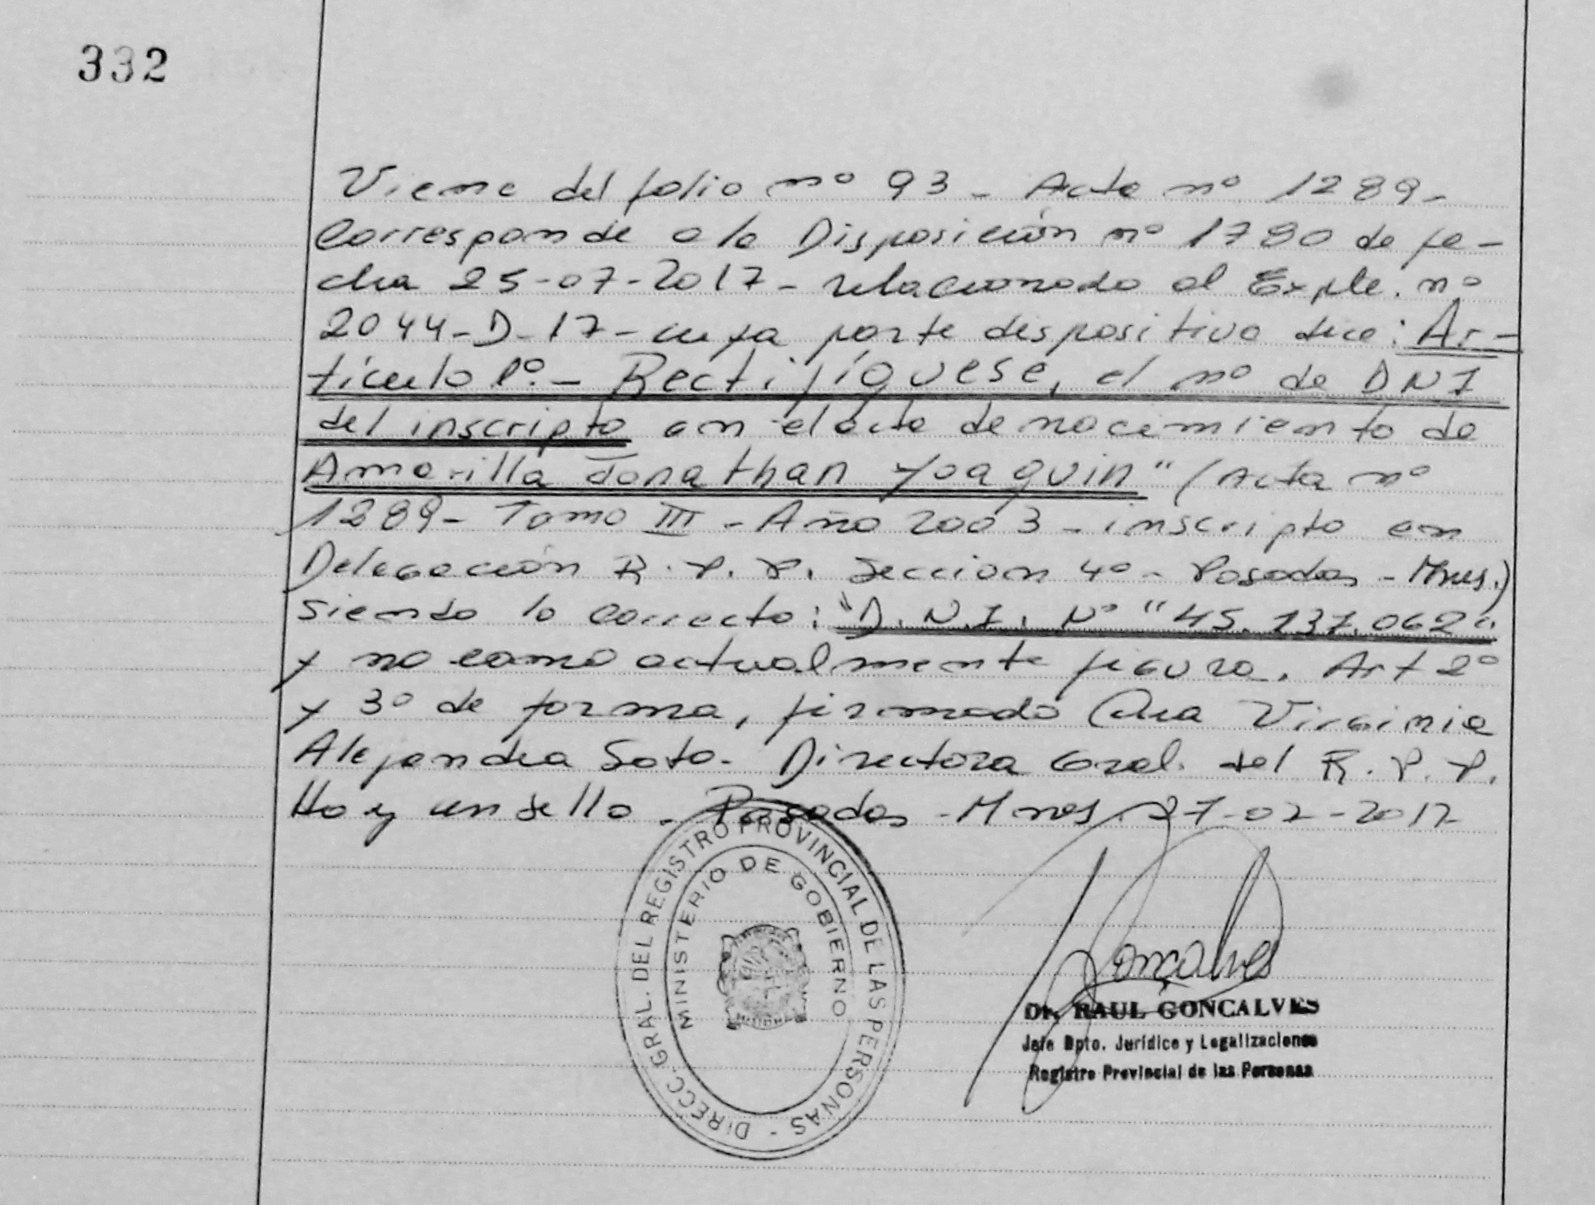 332
Viene del folio nº 93 - Acta nº 1289 -
Corresponde a la Disposición nº 1780 de fe-
cha 25-07-2017 - relacionado al Expte. nº
2044-D-17 - cuya parte dispositiva dice: Ar-
tículo 1º.- Rectifíquese, el nº de DNI
del inscripto en el acta de nacimiento de
Amarilla Jonathan Yoaquin" (Acta nº
1289 - Tomo III - Año 2003 - inscripto en
Delegación R. P. P. Seccion 4º - Posadas - Mnes.)
siendo lo correcto: "D. N. I. Nº "45.137.062".
y no como actualmente figura. Art 2º
y 3º de forma, firmado Virginia
Alejandra Soto. Directora Gral. del R. P. P.
Hay un sello - Posadas - Mnes 27-02-2017
DIRECC. GRAL. DEL REGISTRO PROVINCIAL DE LAS PERSONAS -
MINISTERIO DE GOBIERNO
Goncalves
Dr. RAUL GONCALVES
Jefe Dpto. Jurídico y Legalizaciones
Registro Provincial de las Personas